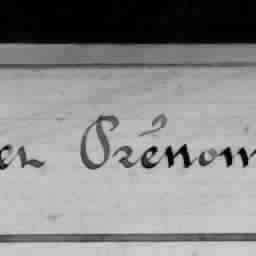 er Prénom